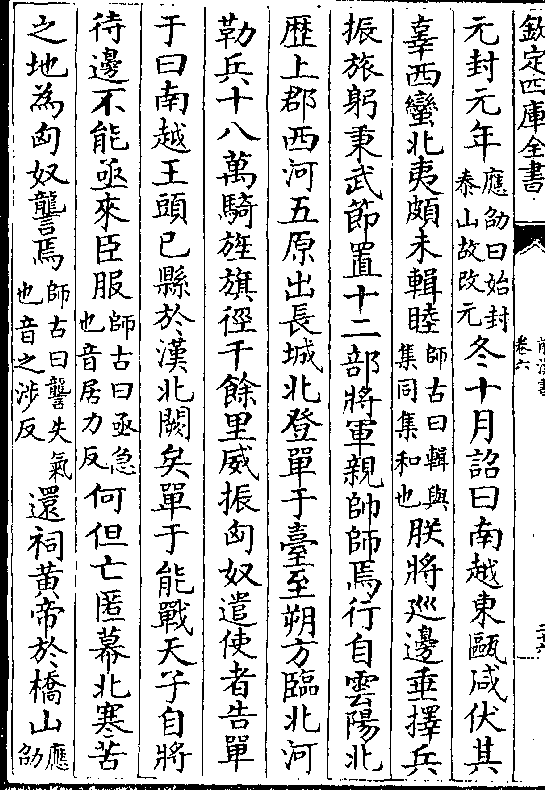 欽定四庫全書
前漢書
卷六
元封元年應劭曰始封泰山故改元冬十月詔曰南越東甌咸伏其
辜西蠻北夷頗未輯睦師古曰輯與集同集和也朕將巡邊垂擇兵
振旅躬秉武節置十二部將軍親帥師焉行自雲陽北
歴上郡西河五原出長城北登單于臺至朔方臨北河
勒兵十八萬騎旌旗徑千餘里威振匈奴遣使者告單
于曰南越王頭已縣於漢北闕矣單于能戰天子自將
待邊不能亟來臣服師古曰亟急也音居力反何但亡匿幕北寒苦
之地為匈奴讋焉師古曰讋失氣也音之涉反還祠黄帝於橋山應劭